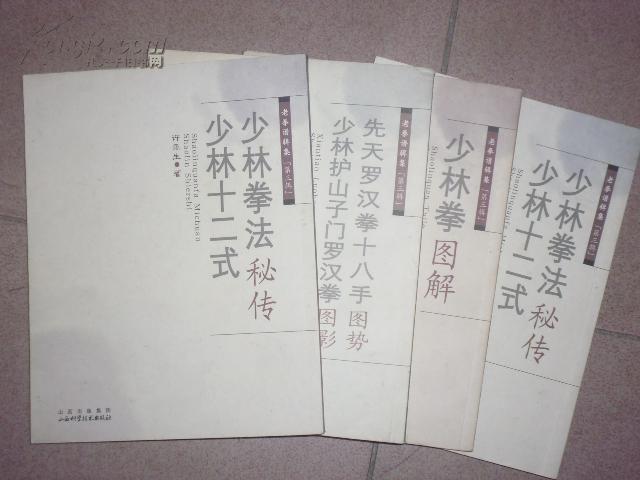 老拳谱辑集「第三辑」
少林拳法秘传
少林十二式
Shaolinquanfa Michuan
Shaolin Shiershi
许禹生●著
山西出版集团
山西科学技术出版社
老拳谱辑集「第三辑」
先天罗汉拳十八手图势
少林护山子门罗汉拳图影
老拳谱辑集「第三辑」
少林拳图解
老拳谱辑集「第三辑」
少林拳法秘传
少林十二式